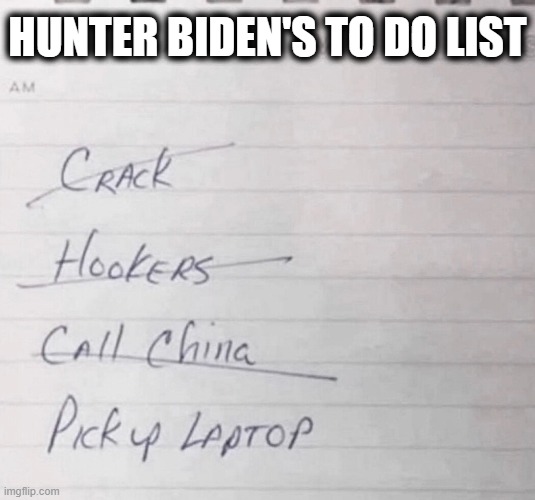 HUNTER BIDEN'S TO DO LIST
AM
CRACK
HOOKERS
CAll China
Pick up LAPTOP
imgflip.com